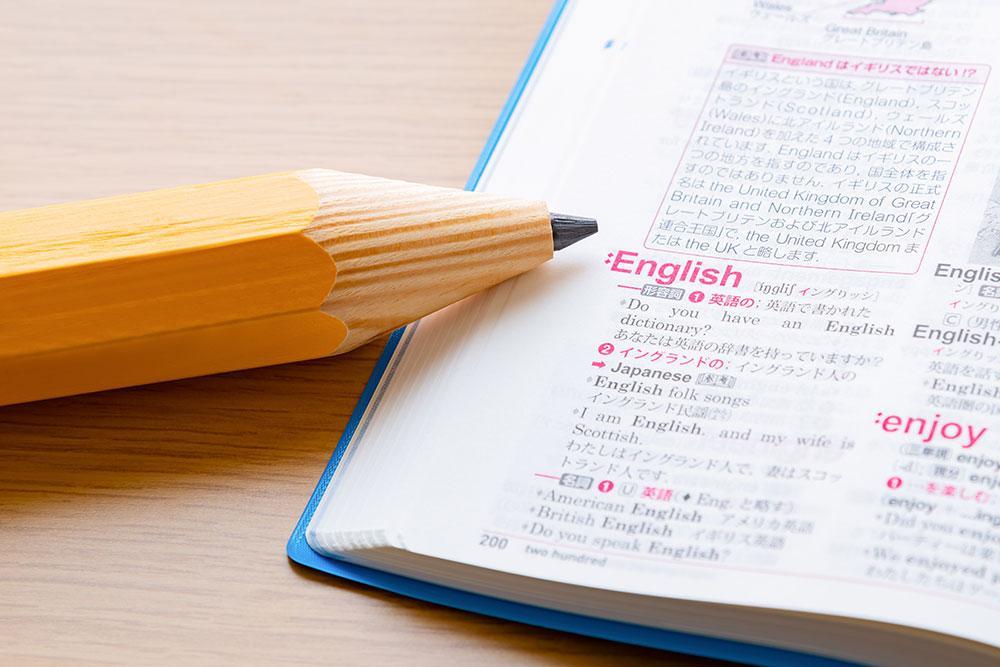 Wales
ウェールズ
Great Britain
グレートブリテン島
Englandはイギリスではない!?
イギリスという国は, グレートブリテン
島のイングランド(England), スコッ
トランド(Scotland), ウェールズ
(Wales)に北アイルランド(Northern
Ireland)を加えた4つの地域で構成さ
れています. Englandはイギリスの一
つの地方を指すのであり, 国全体を指
すのではありません. イギリスの正式
名は the United Kingdom of Great
Britain and Northern Ireland「グ
レートブリテンおよび北アイルランド
連合王国」で, the United Kingdom ま
たは the UK と略します.
English [íŋgliʃ イングリッシ]
形容詞 ❶ 英語の; 英語で書かれた
Do you have an English
dictionary?
あなたは英語の辞書を持っていますか?
❷ イングランドの; イングランド人の
➡ Japanese 参考
English folk songs
イングランド民謡
I am English, and my wife is
Scottish.
わたしはイングランド人で, 妻はスコッ
トランド人です.
名詞 ❶ U 英語 (♦ Eng. と略す)
American English アメリカ英語
British English イギリス英語
Do you speak English?
200 two hundred
English
イングリッ
C (男性
English
英語を話
English
英語圏の
enjoy
enjoy
❶ …を楽しむ;
enjoy
Did you enjoy
We enjoyed
わたしたちは